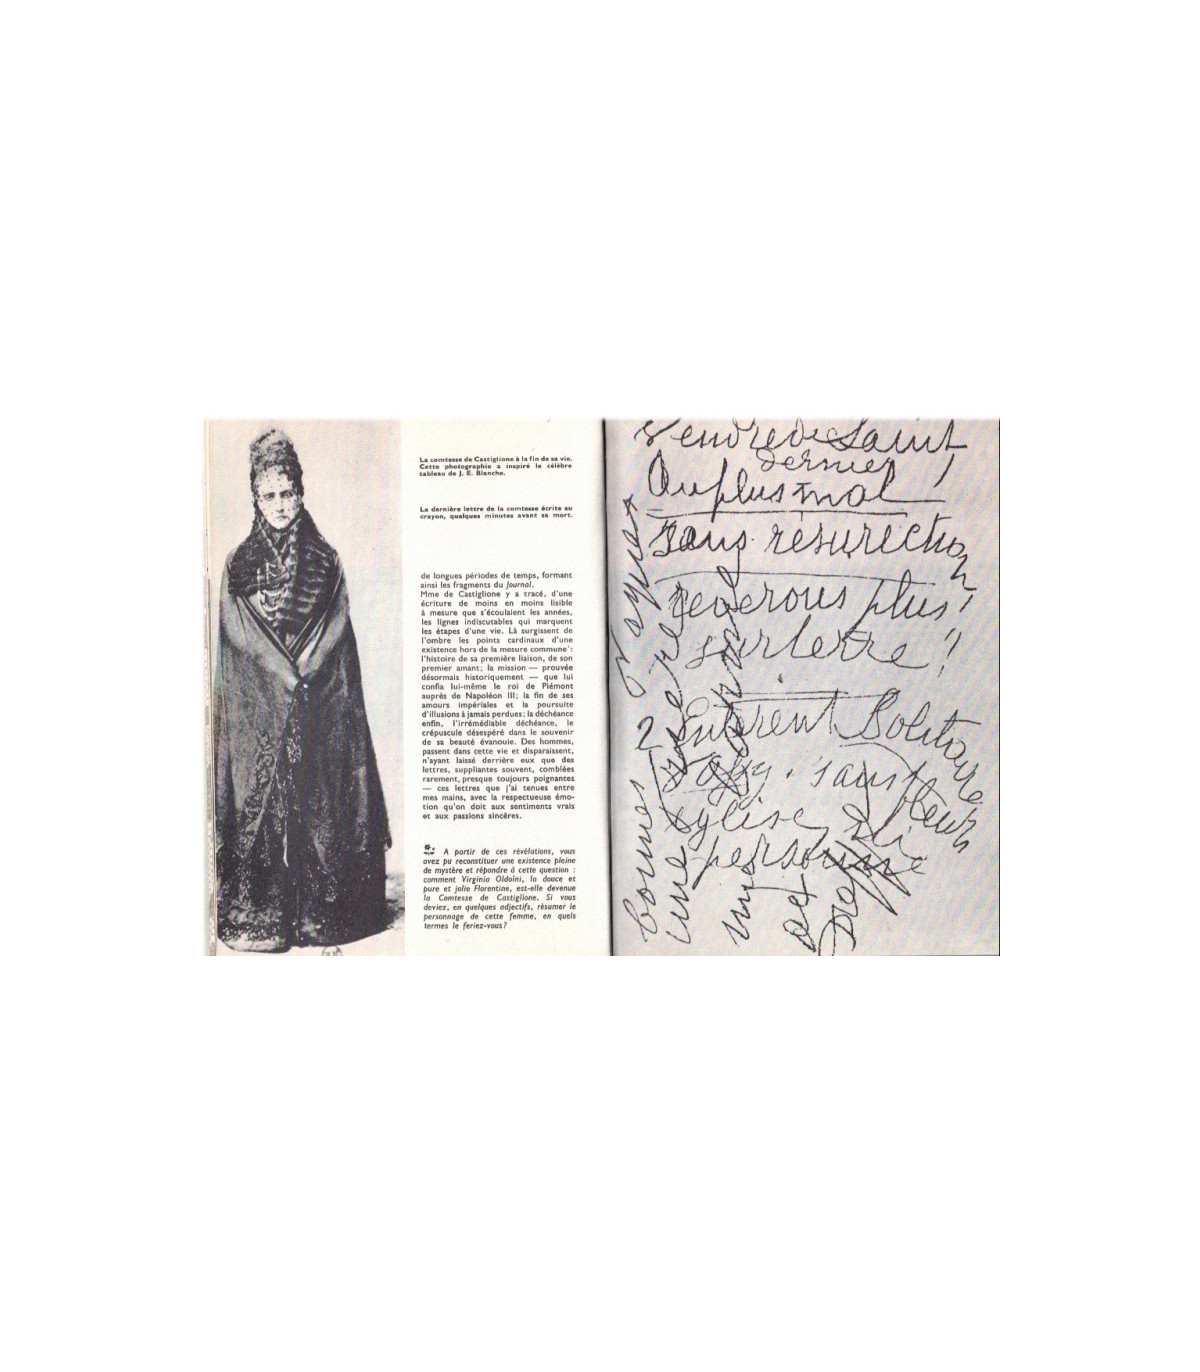 La comtesse de Castiglione à la fin de sa vie.
Cette photographie a inspiré le célèbre
tableau de J. E. Blanche.
La dernière lettre de la comtesse écrite au
crayon, quelques minutes avant sa mort.
de longues périodes de temps, formant
ainsi les fragments du Journal.
Mme de Castiglione y a tracé, d'une
écriture de moins en moins lisible
à mesure que s'écoulaient les années,
les lignes indiscutables qui marquent
les étapes d'une vie. Là surgissent de
l'ombre les points cardinaux d'une
existence hors de la mesure commune :
l'histoire de sa première liaison, de son
premier amant; la mission — prouvée
désormais historiquement — que lui
confia lui-même le roi de Piémont
auprès de Napoléon III; la fin de ses
amours impériales et la poursuite
d'illusions à jamais perdues; la déchéance
enfin, l'irrémédiable déchéance, le
crépuscule désespéré dans le souvenir
de sa beauté évanouie. Des hommes,
passent dans cette vie et disparaissent,
n'ayant laissé derrière eux que des
lettres, suppliantes souvent, comblées
rarement, presque toujours poignantes
— ces lettres que j'ai tenues entre
mes mains, avec la respectueuse émo-
tion qu'on doit aux sentiments vrais
et aux passions sincères.
A partir de ces révélations, vous
avez pu reconstituer une existence pleine
de mystère et répondre à cette question :
comment Virginia Oldoïni, la douce et
pure et jolie Florentine, est-elle devenue
la Comtesse de Castiglione. Si vous
deviez, en quelques adjectifs, résumer le
personnage de cette femme, en quels
termes le feriez-vous?
Vendredi Saint
dernier !
Au plus mal
sans résurection
reverons plus !
sur terre !
Enterrent Solitaire
sans fleurs
église, ni
personne